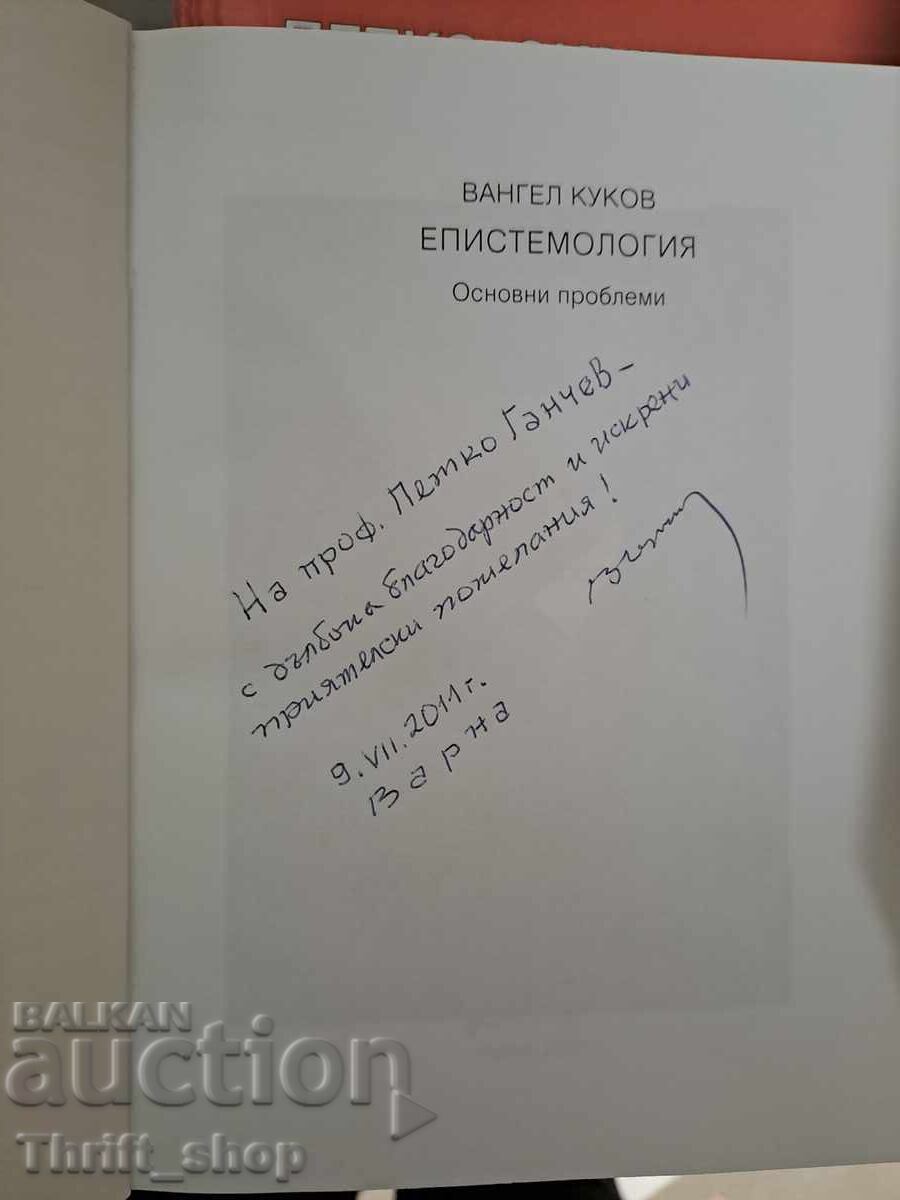 ВАНГЕЛ КУКОВ
ЕПИСТЕМОЛОГИЯ
Основни проблеми
На проф. Петко Ганчев –
с дълбока благодарност и искрени
приятелски пожелания!
9.VII.2011г.
Варна
BALKAN
auction
Thrift_shop